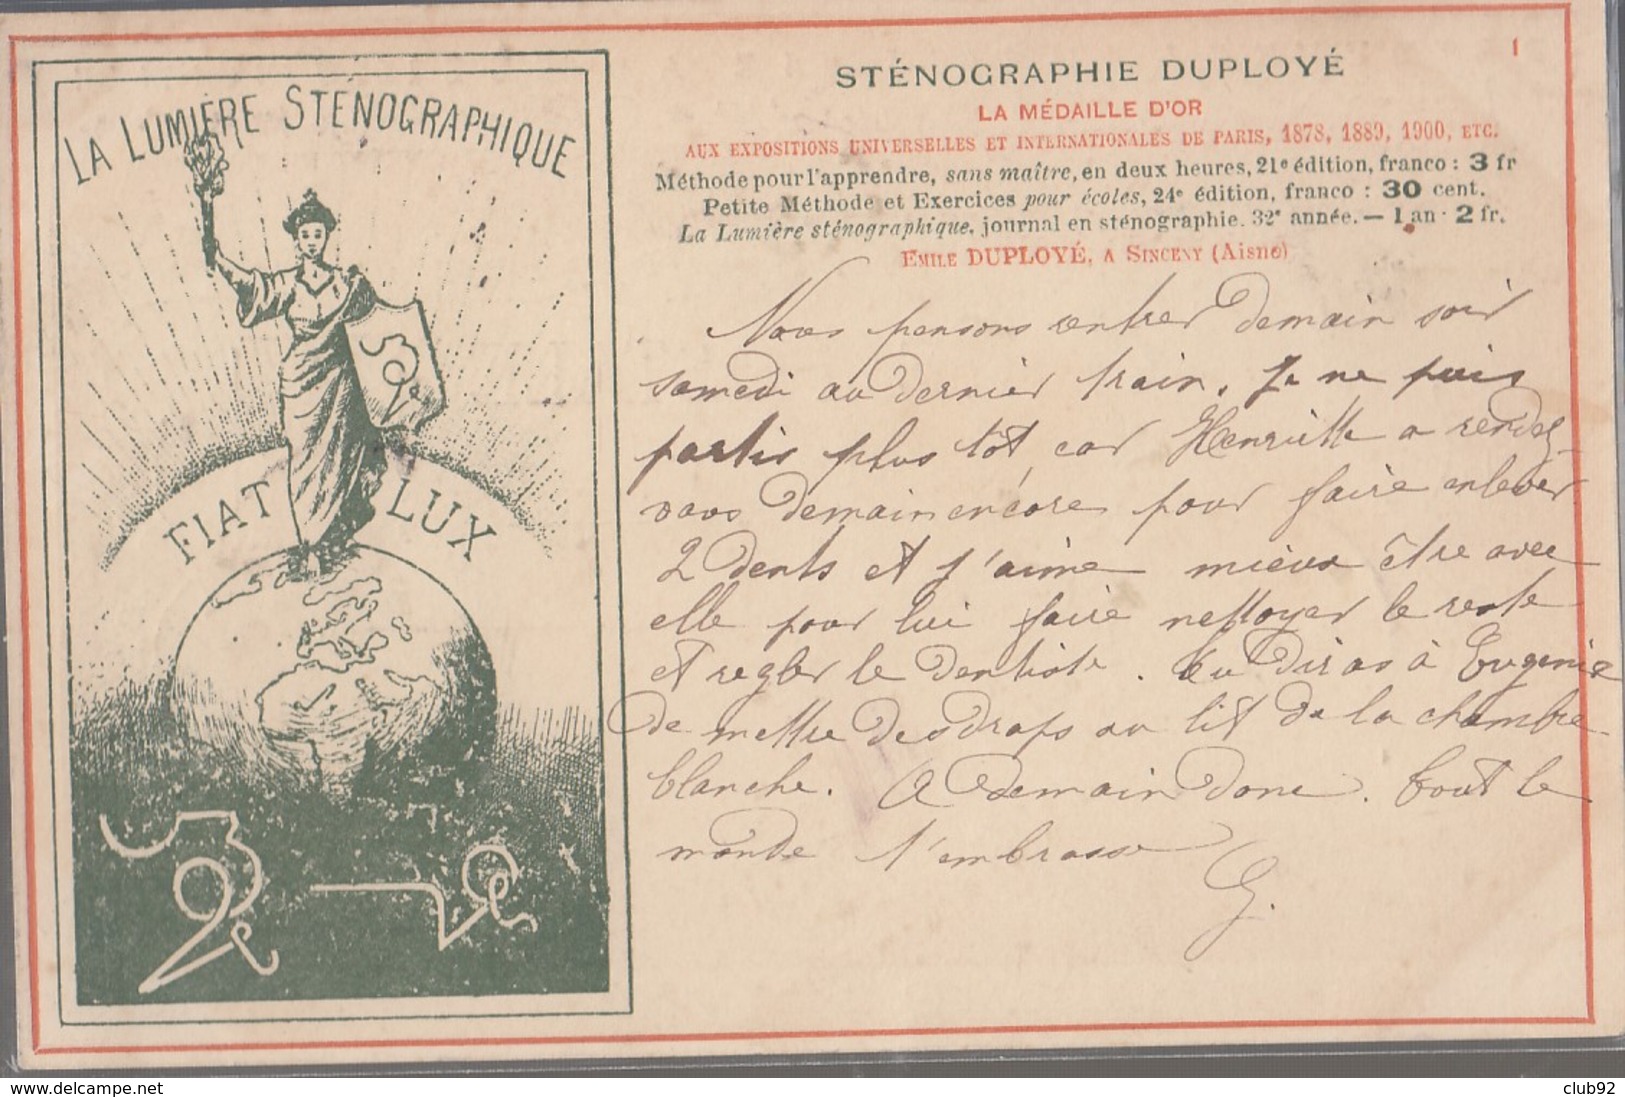 LA LUMIÈRE STÉNOGRAPHIQUE
FIAT LUX
1
STÉNOGRAPHIE DUPLOYÉ
LA MÉDAILLE D'OR
AUX EXPOSITIONS UNIVERSELLES ET INTERNATIONALES DE PARIS, 1878, 1889, 1900, ETC.
Méthode pour l'apprendre, sans maître, en deux heures, 21e édition, franco : 3 fr
Petite Méthode et Exercices pour écoles, 24e édition, franco : 30 cent.
La Lumière sténographique, journal en sténographie. 32e année. — 1 an · 2 fr.
EMILE DUPLOYÉ, A SINCENY (Aisne)
Nous pensons rentrer demain soir
samedi au dernier train. Je ne puis
partir plus tôt car Henriette a rendez-
vous demain encore pour faire enlever
2 dents et j'aime mieux être avec
elle pour lui faire nettoyer le reste
et regler le dentiste. tu diras à Eugenie
de mettre des draps au lit de la chambre
blanche. A demain donc. tout le
monde t'embrasse
G.
delcampe.net
club92